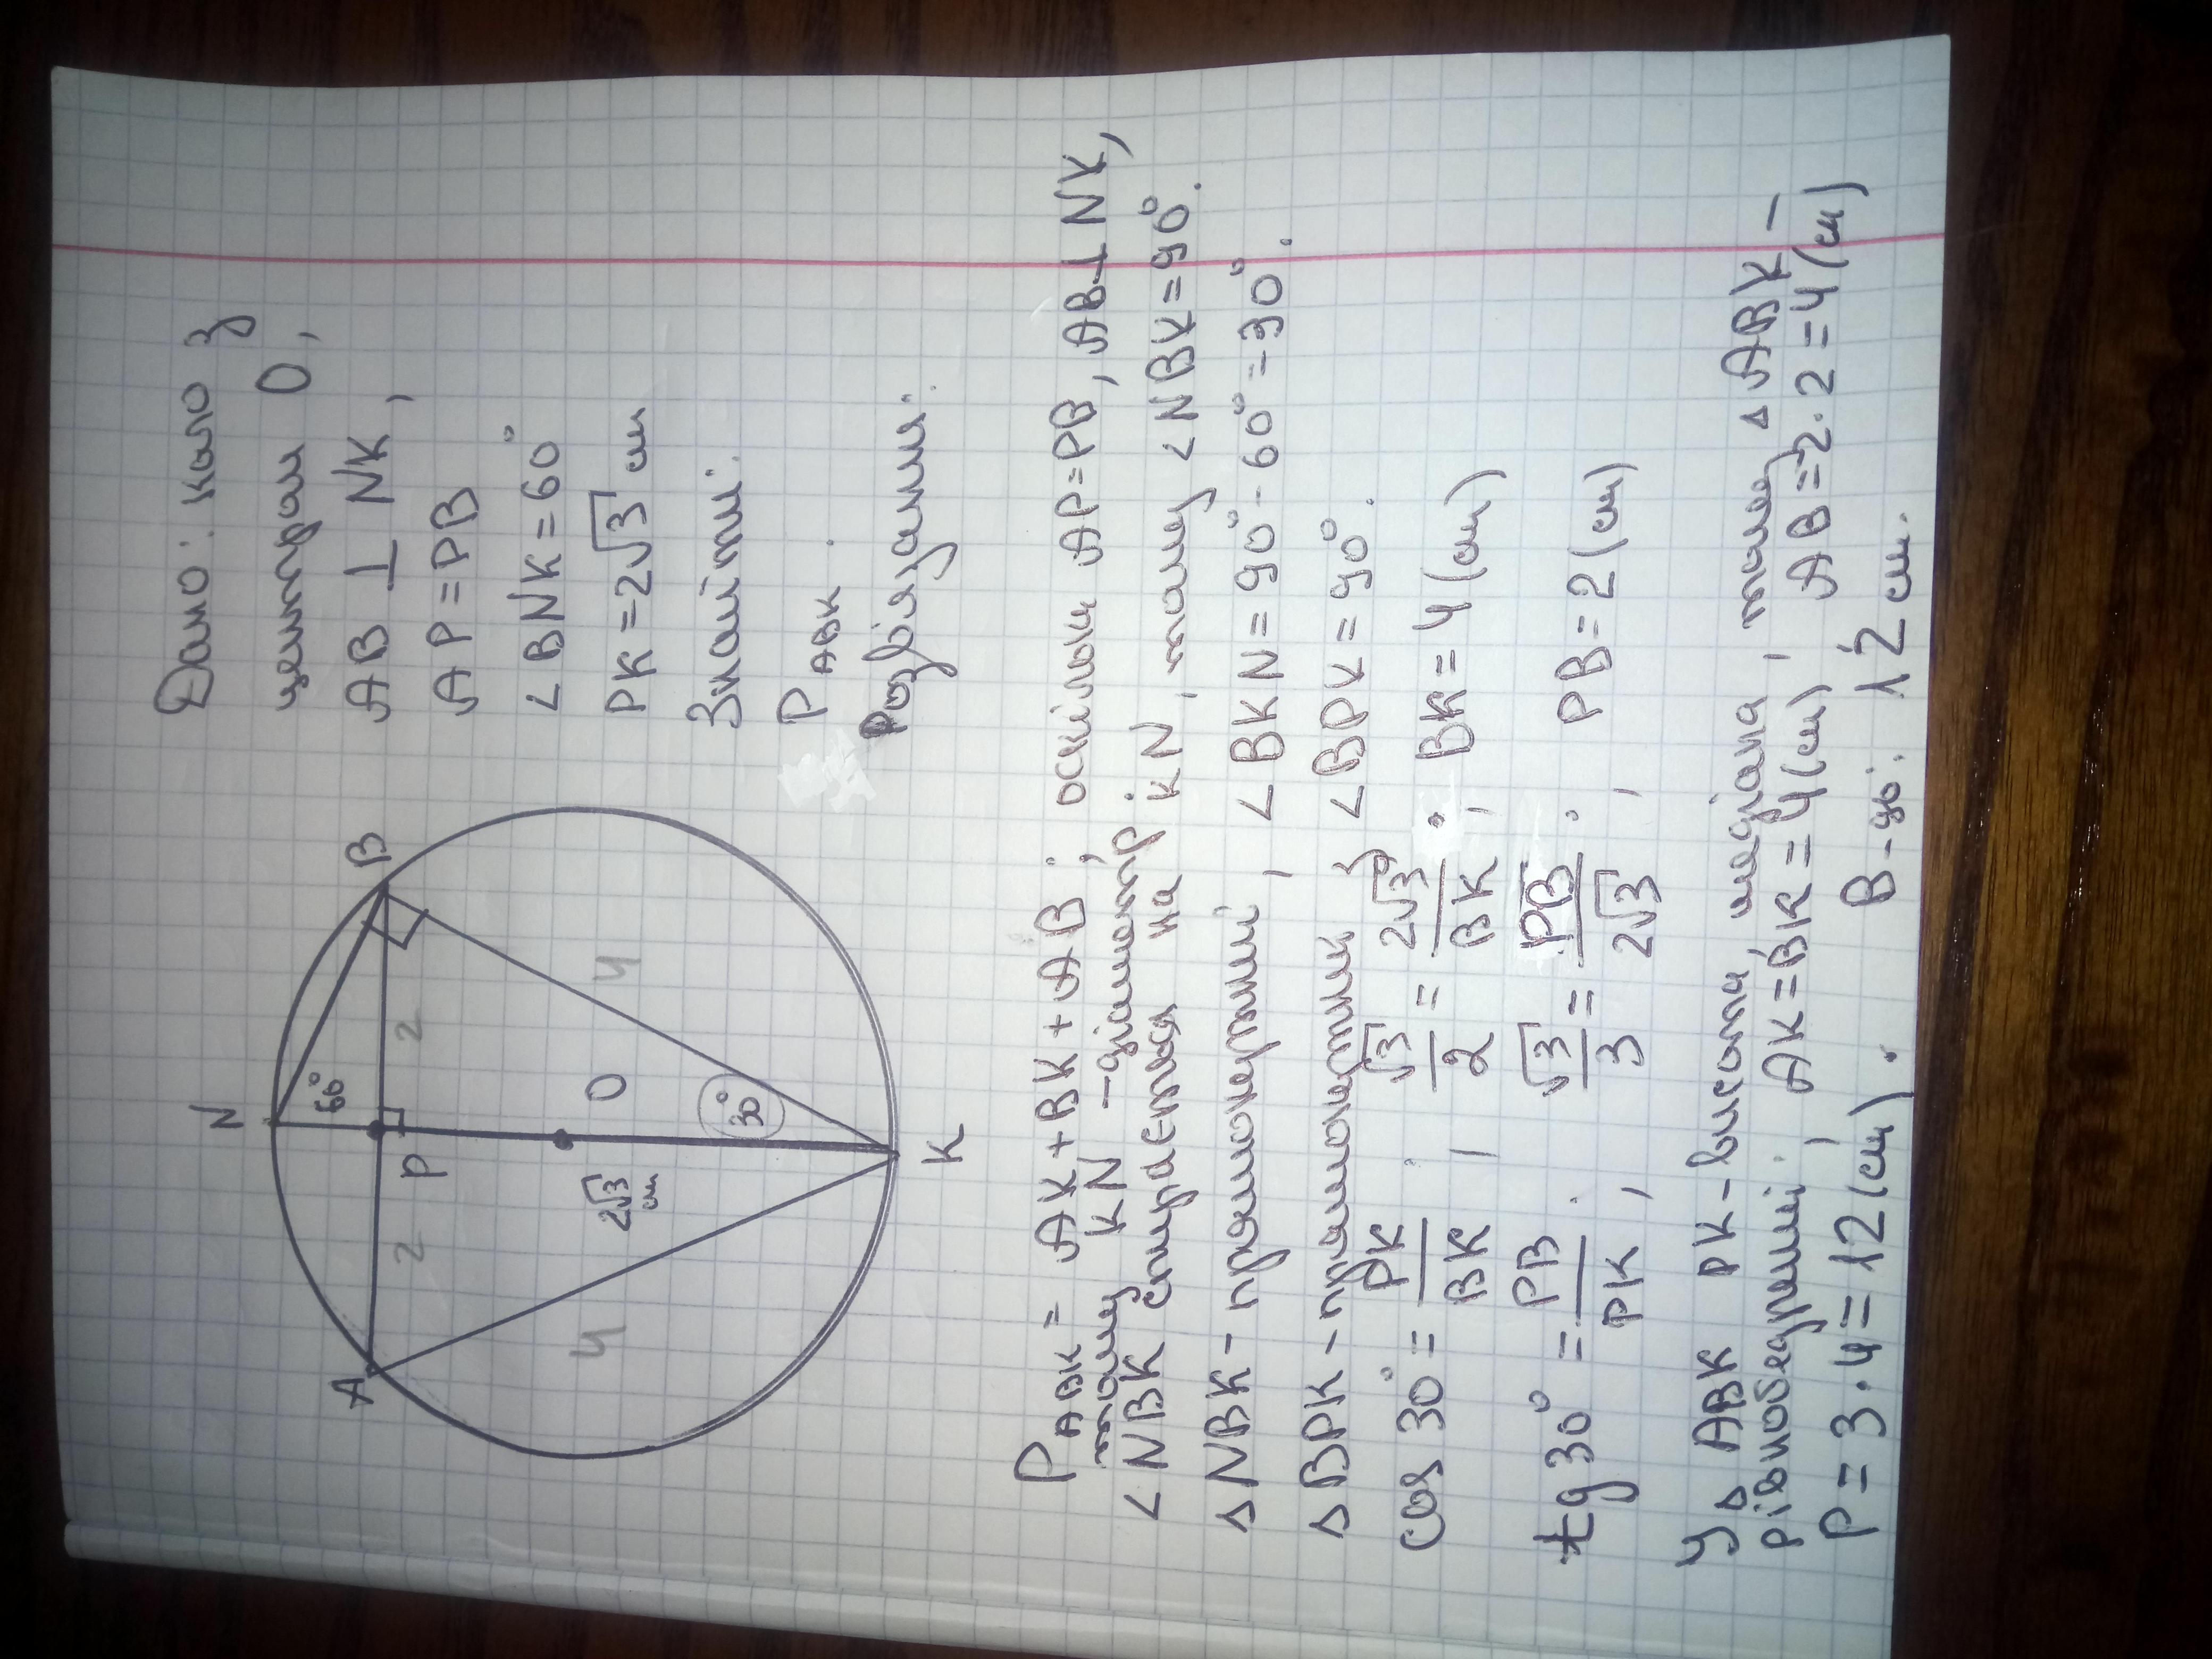 N
A
B
60°
P
2
2
2√3 см
O
4
4
30°
K
Дано: коло з
центром O,
AB ⊥ NK,
AP = PB
∠BNK = 60°
PK = 2√3 см
Знайти:
P ABK.
Розв'язання:
P ABK = AK + BK + AB; оскільки AP = PB, AB ⊥ NK,
тому KN - діаметр.
∠NBK спирається на KN, тому ∠NBK = 90°.
△NBK - прямокутний, ∠BKN = 90° - 60° = 30°.
△BPK - прямокутний ∠BPK = 90°.
cos 30° = PK/BK; √3/2 = 2√3/BK; BK = 4 (см)
tg 30° = PB/PK; √3/3 = PB/2√3; PB = 2 (см)
У △ABK PK - висота, медіана, тому △ABK -
рівнобедрений; AK = BK = 4 (см), AB = 2·2 = 4 (см)
P = 3·4 = 12 (см).
В-дь: 12 см.